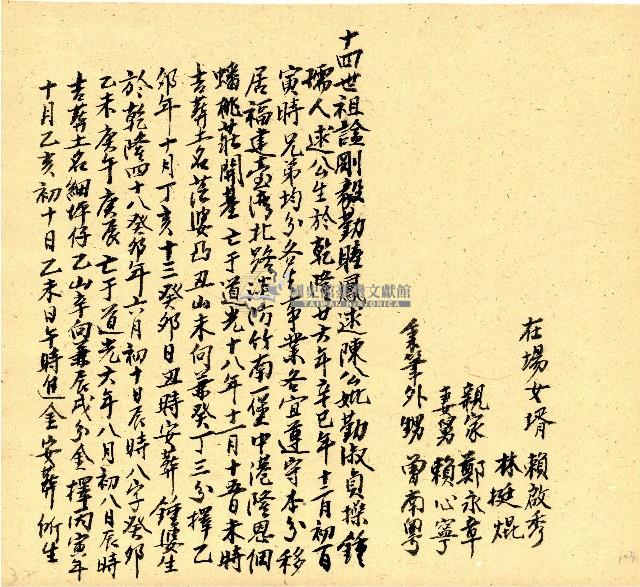 在場女壻 賴啟秀
林挺焜
親家 鄭永章
妻舅 賴心寧
筆外甥 曾南粵
十四世祖謚剛毅勤 逑陳公妣勤淑貞操鍾
孺人逑公生於乾隆廿六年辛巳年十二月初百
寅時兄弟均分各 事業各宜遵守本分移
居福建臺灣北路淡防竹南一堡中港隆恩個
蟠桃莊開基亡于道光十八年十一月十五日未時
吉葬土名茫婆凸丑山未向兼癸丁三分擇乙
卯年十月丁亥十三癸卯日丑時安葬 鍾婆生
於乾隆四十八癸卯年六月初十日辰時八字癸卯
乙未庚午庚辰亡于道光六年八月初八日辰時
吉葬土名細坪仔乙山辛向兼辰戌分金擇丙寅年
十月乙亥初十日乙未日午時進金安葬 所生
國史館臺灣文獻館
TAIWAN HISTORICA